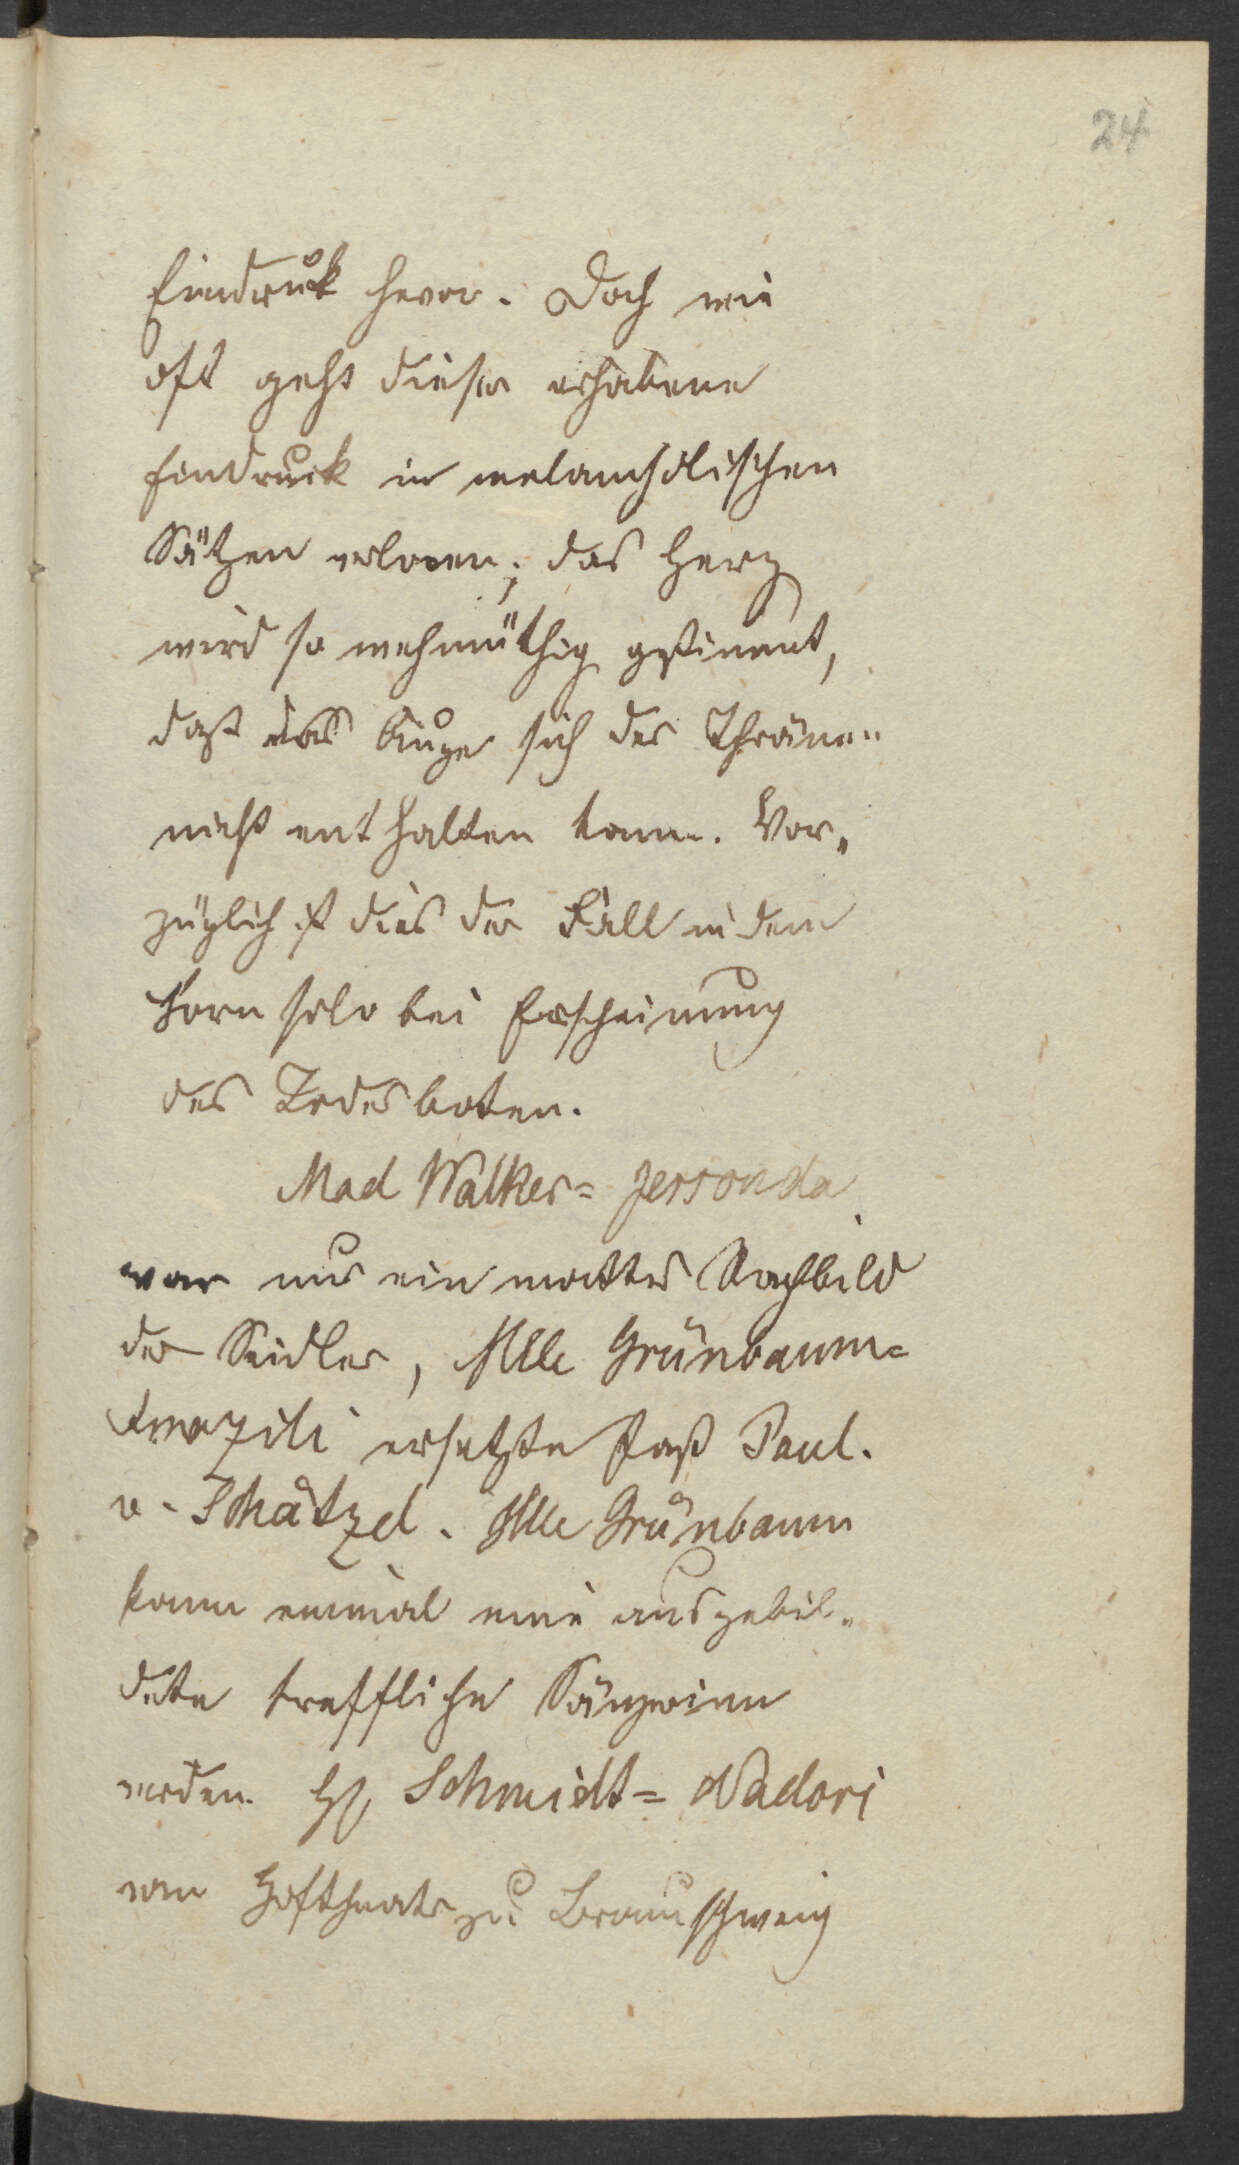 24
Eindruk hevor. Doch wie
oft geht dieser erhabene
Eindruck in melancholischen
Sätzen verloren; das Herz
wird so wehmüthig gestimmt,
daß das Auge sich der Thränen
nicht enthalten kann. Vor„
züglich ist dies der Fall in dem
Horn solo bei Erscheinung
des Todesboten.
Mad Walker= Jessonda
war nur ein mattes Nachbild
der Seidler, Mlle Grünbaum=
Amazili ersetzte fast Paul.
v. Schätzel. Mlle Grünbaum
kann einmal eine ausgebil„
dete treffliche Sängerinn
werden. H Schmidt= Nadori
vom Hoftheater zu Braunschweig